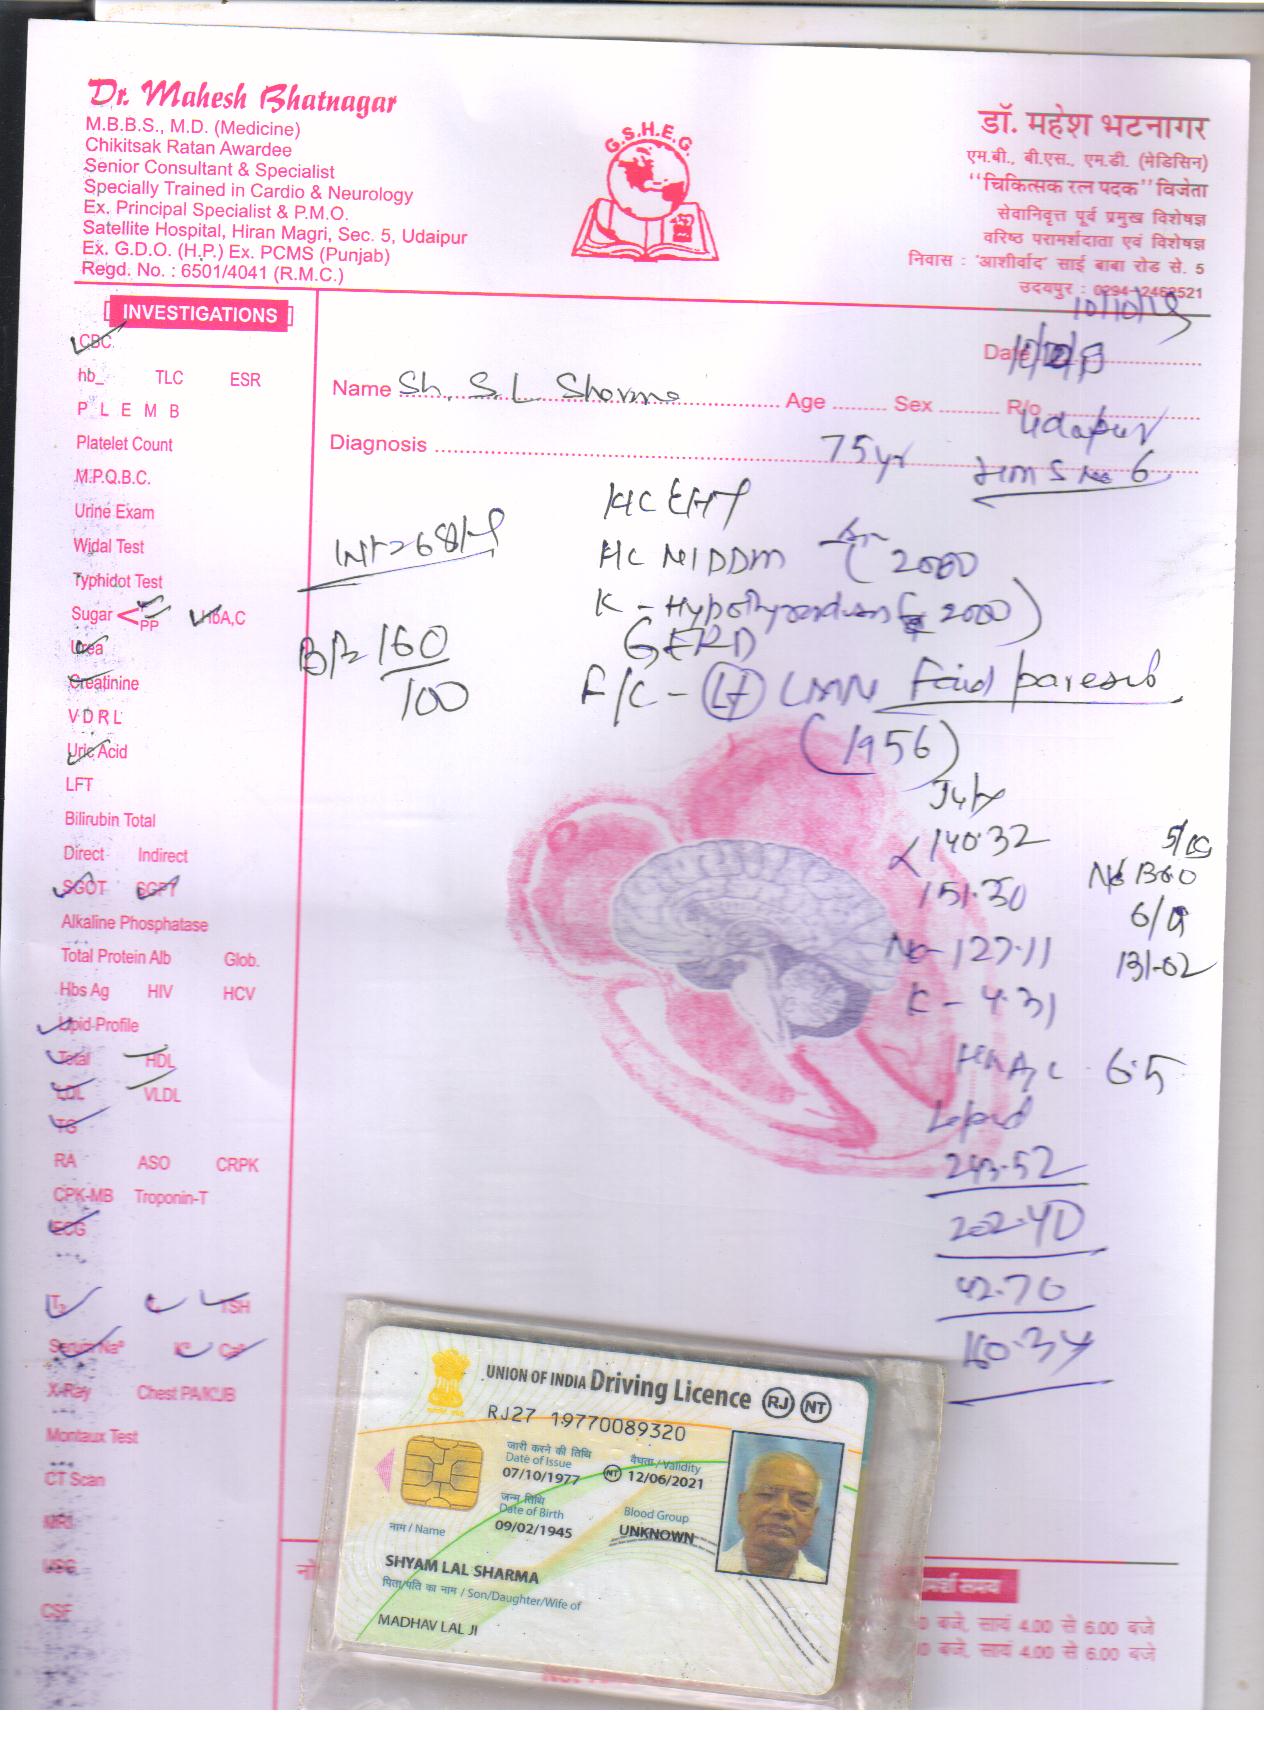 Dr. Mahesh Bhatnagar
M.B.B.S., M.D. (Medicine)
Chikitsak Ratan Awardee
Senior Consultant & Specialist
Specially Trained in Cardio & Neurology
Ex. Principal Specialist & P.M.O.
Satellite Hospital, Hiran Magri, Sec. 5, Udaipur
Ex. G.D.O. (H.P.) Ex. PCMS (Punjab)
Regd. No. : 6501/4041 (R.M.C.)
G.S.H.E.G.
डॉ. महेश भटनागर
एम.बी., बी.एस., एम.डी. (मेडिसिन)
“चिकित्सक रत्न पदक” विजेता
सेवानिवृत्त पूर्व प्रमुख विशेषज्ञ
वरिष्ठ परामर्शदाता एवं विशेषज्ञ
निवास : 'आशीर्वाद' साई बाबा रोड से. 5
उदयपुर : 0294-2463521
10/10/19
Date
Name Sh. S. L Sharma Age Sex R/o Udaipur
Diagnosis 75yr
INVESTIGATIONS
CBC
hb_ TLC ESR
P L E M B
Platelet Count
M.P.Q.B.C.
Urine Exam
Widal Test
Typhidot Test
Sugar < F PP HbA,C
Urea
Creatinine
V D R L
Uric Acid
LFT
Bilirubin Total
Direct Indirect
SGOT SGPT
Alkaline Phosphatase
Total Protein Alb Glob.
Hbs Ag HIV HCV
Lipid-Profile
Total HDL
LDL VLDL
TG
RA ASO CRPK
CPK-MB Troponin-T
ECG
T3 TSH
Serum Na K Ca
X-Ray Chest PA/KUB
Montaux Test
CT Scan
MRI
USG
CSF
HMS No 6
BP 160/100
NIDDM 2000
2000)
GERD
Lt LMN paresis
(1956)
140.32
151.30
Na-127.11
K-4.31
5/19
6/19
131.02
HbA1C 6.5
Lipid
243.52
202.40
42.70
160.34
UNION OF INDIA Driving Licence RJ NT
RJ27 19770089320
जारी करने की तिथि
Date of Issue
07/10/1977
वैधता / Validity
NT 12/06/2021
जन्म तिथि
Date of Birth
09/02/1945
Blood Group
UNKNOWN
नाम / Name
SHYAM LAL SHARMA
पिता/पति का नाम / Son/Daughter/Wife of
MADHAV LAL JI
बजे, सायं 4.00 से 6.00 बजे
बजे, सायं 4.00 से 6.00 बजे